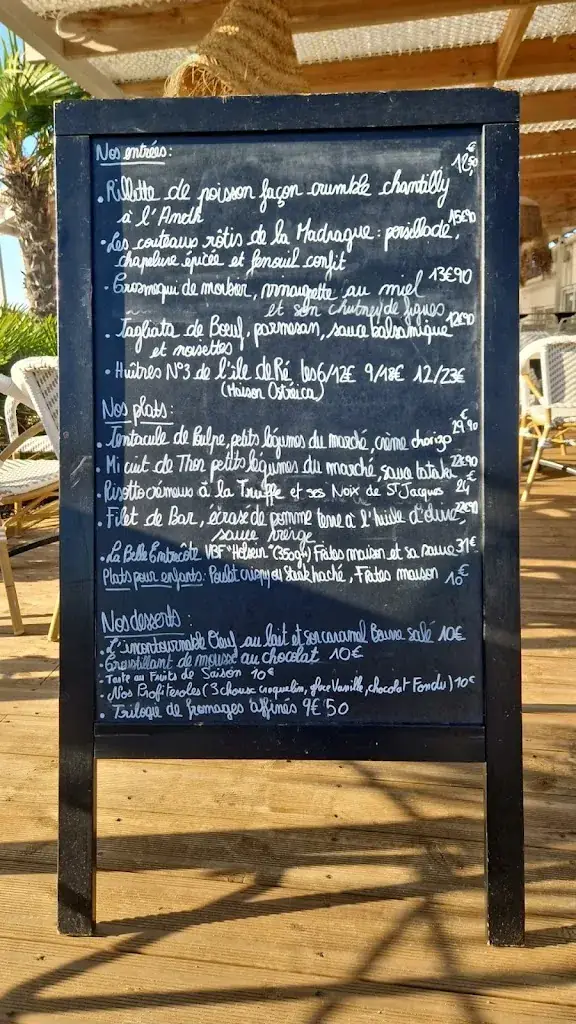 Nos entrées :
• Rillette de poisson façon crumble chantilly 12€50
à l'Aneth
• Les couteaux rôtis de la Madrague : persillade, 15€90
chapelure épicée et fenouil confit
• Cromesqui de morbier, vinaigrette au miel 13€90
et son chutney de figues
• Tagliata de Boeuf, parmesan, sauce balsamique 12€90
et noisettes
• Huîtres N°3 de l'île de Ré les 6/12€ 9/18€ 12/23€
(Maison Ostréica)
Nos plats :
• Tentacule de Pulpe, petits légumes du marché, crème chorizo 29€90
• Mi cuit de Thon petits légumes du marché, sauce tataki 22€90
• Risotto crémeux à la Truffe et ses Noix de St Jacques 24€
• Filet de Bar, écrasé de pomme terre à l'huile d'olive,
sauce vierge
• La Belle Entrecôte VBF "Holstein" (350gr) Frites maison et sa sauce 31€
Plats pour enfants : Poulet crispy ou Steak haché, Frites maison 10€
Nos desserts :
• L'incontournable Oeuf au lait et son caramel Beurre salé 10€
• Croustillant de mousse au chocolat 10€
• Tarte aux Fruits de Saison 10€
• Nos Profiteroles (3 choux croquelin, glace Vanille, chocolat Fondu) 10€
• Trilogie de fromages affinés 9€50